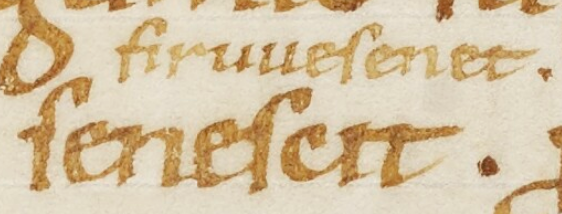 firuuesenet.
senescit.